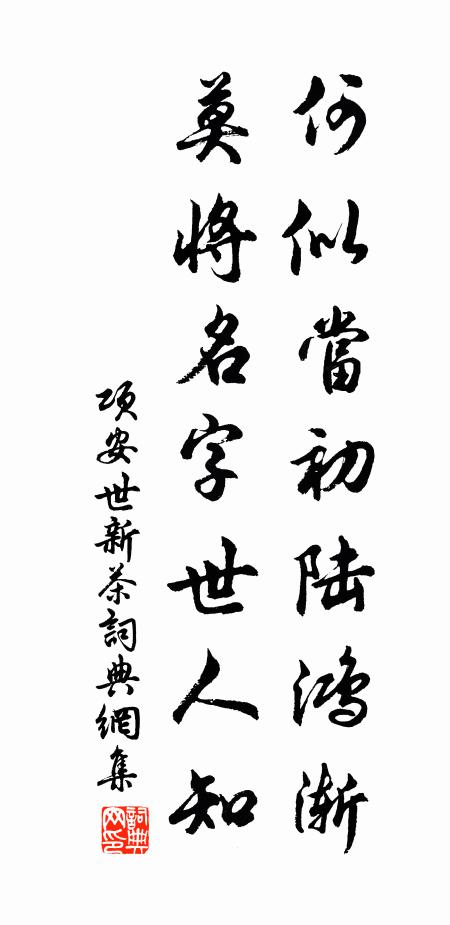 何似當初陆鴻渐
莫将名字世人知
项安世新茶詞典網集
詞典网印